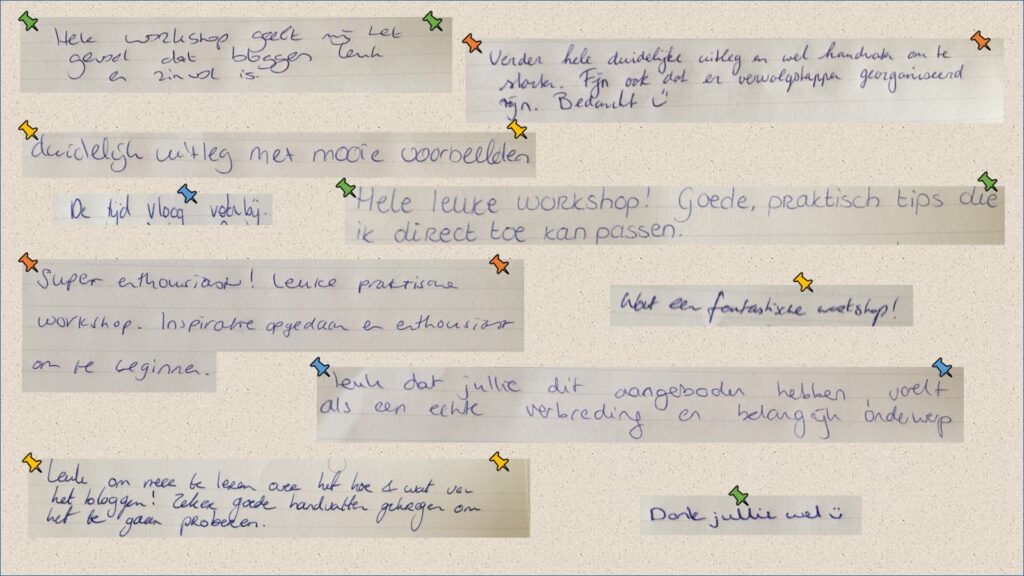 Hele workshop geeft mij het
gevoel dat bloggen leuk
en zinvol is.
Verder hele duidelijke uitleg en veel handvaten om te
starten. Fijn ook dat er vervolgstappen georganiseerd
zijn. Bedankt ☺
duidelijk uitleg met mooie voorbeelden
De tijd vloog voorbij.
Hele leuke workshop! Goede, praktisch tips die
ik direct toe kan passen.
Super enthousiast! Leuke praktische
workshop. Inspiratie opgedaan en enthousiast
om te beginnen.
Wat een fantastische workshop!
leuk dat jullie dit aangeboden hebben, voelt
als een echte verbreding en belangrijk onderwerp
Leuk om meer te leren over het hoe & wat van
het bloggen! Zeker goede handvatten gekregen om
het te gaan proberen.
Dank jullie wel ☺